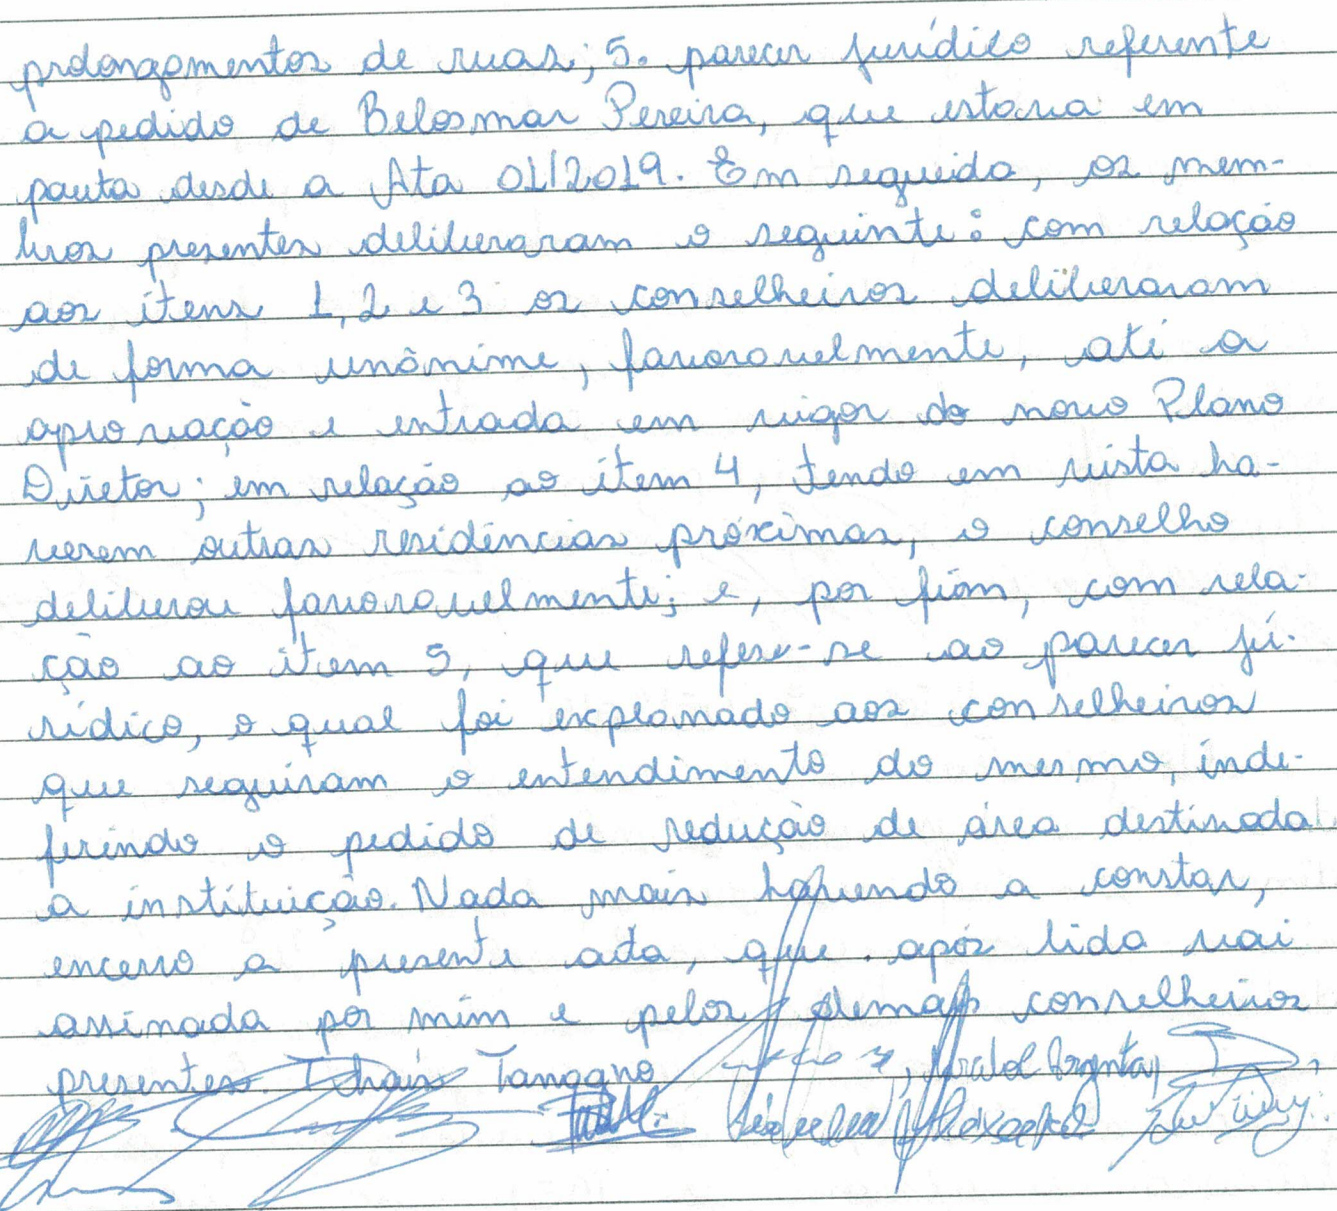 prolongamentos de ruas; 5. parecer jurídico referente
a pedido de Belosmar Pereira, que estava em
pauta desde a Ata 01/2019. Em seguida, os mem-
bros presentes deliberaram o seguinte: com relação
aos itens 1, 2 e 3 os conselheiros deliberaram
de forma unânime, favoravelmente, até a
aprovação e entrada em vigor do novo Plano
Diretor; em relação ao item 4, tendo em vista ha-
verem outras residências próximas, o conselho
deliberou favoravelmente; e, por fim, com rela-
ção ao item 5, que refere-se ao parecer ju-
rídico, o qual foi explanado aos conselheiros
que seguiram o entendimento do mesmo, inde-
ferindo o pedido de redução de área destinada
a instituição. Nada mais havendo a constar,
encerro a presente ata, que após lida vai
assinada por mim e pelos demais conselheiros
presentes. Thaís